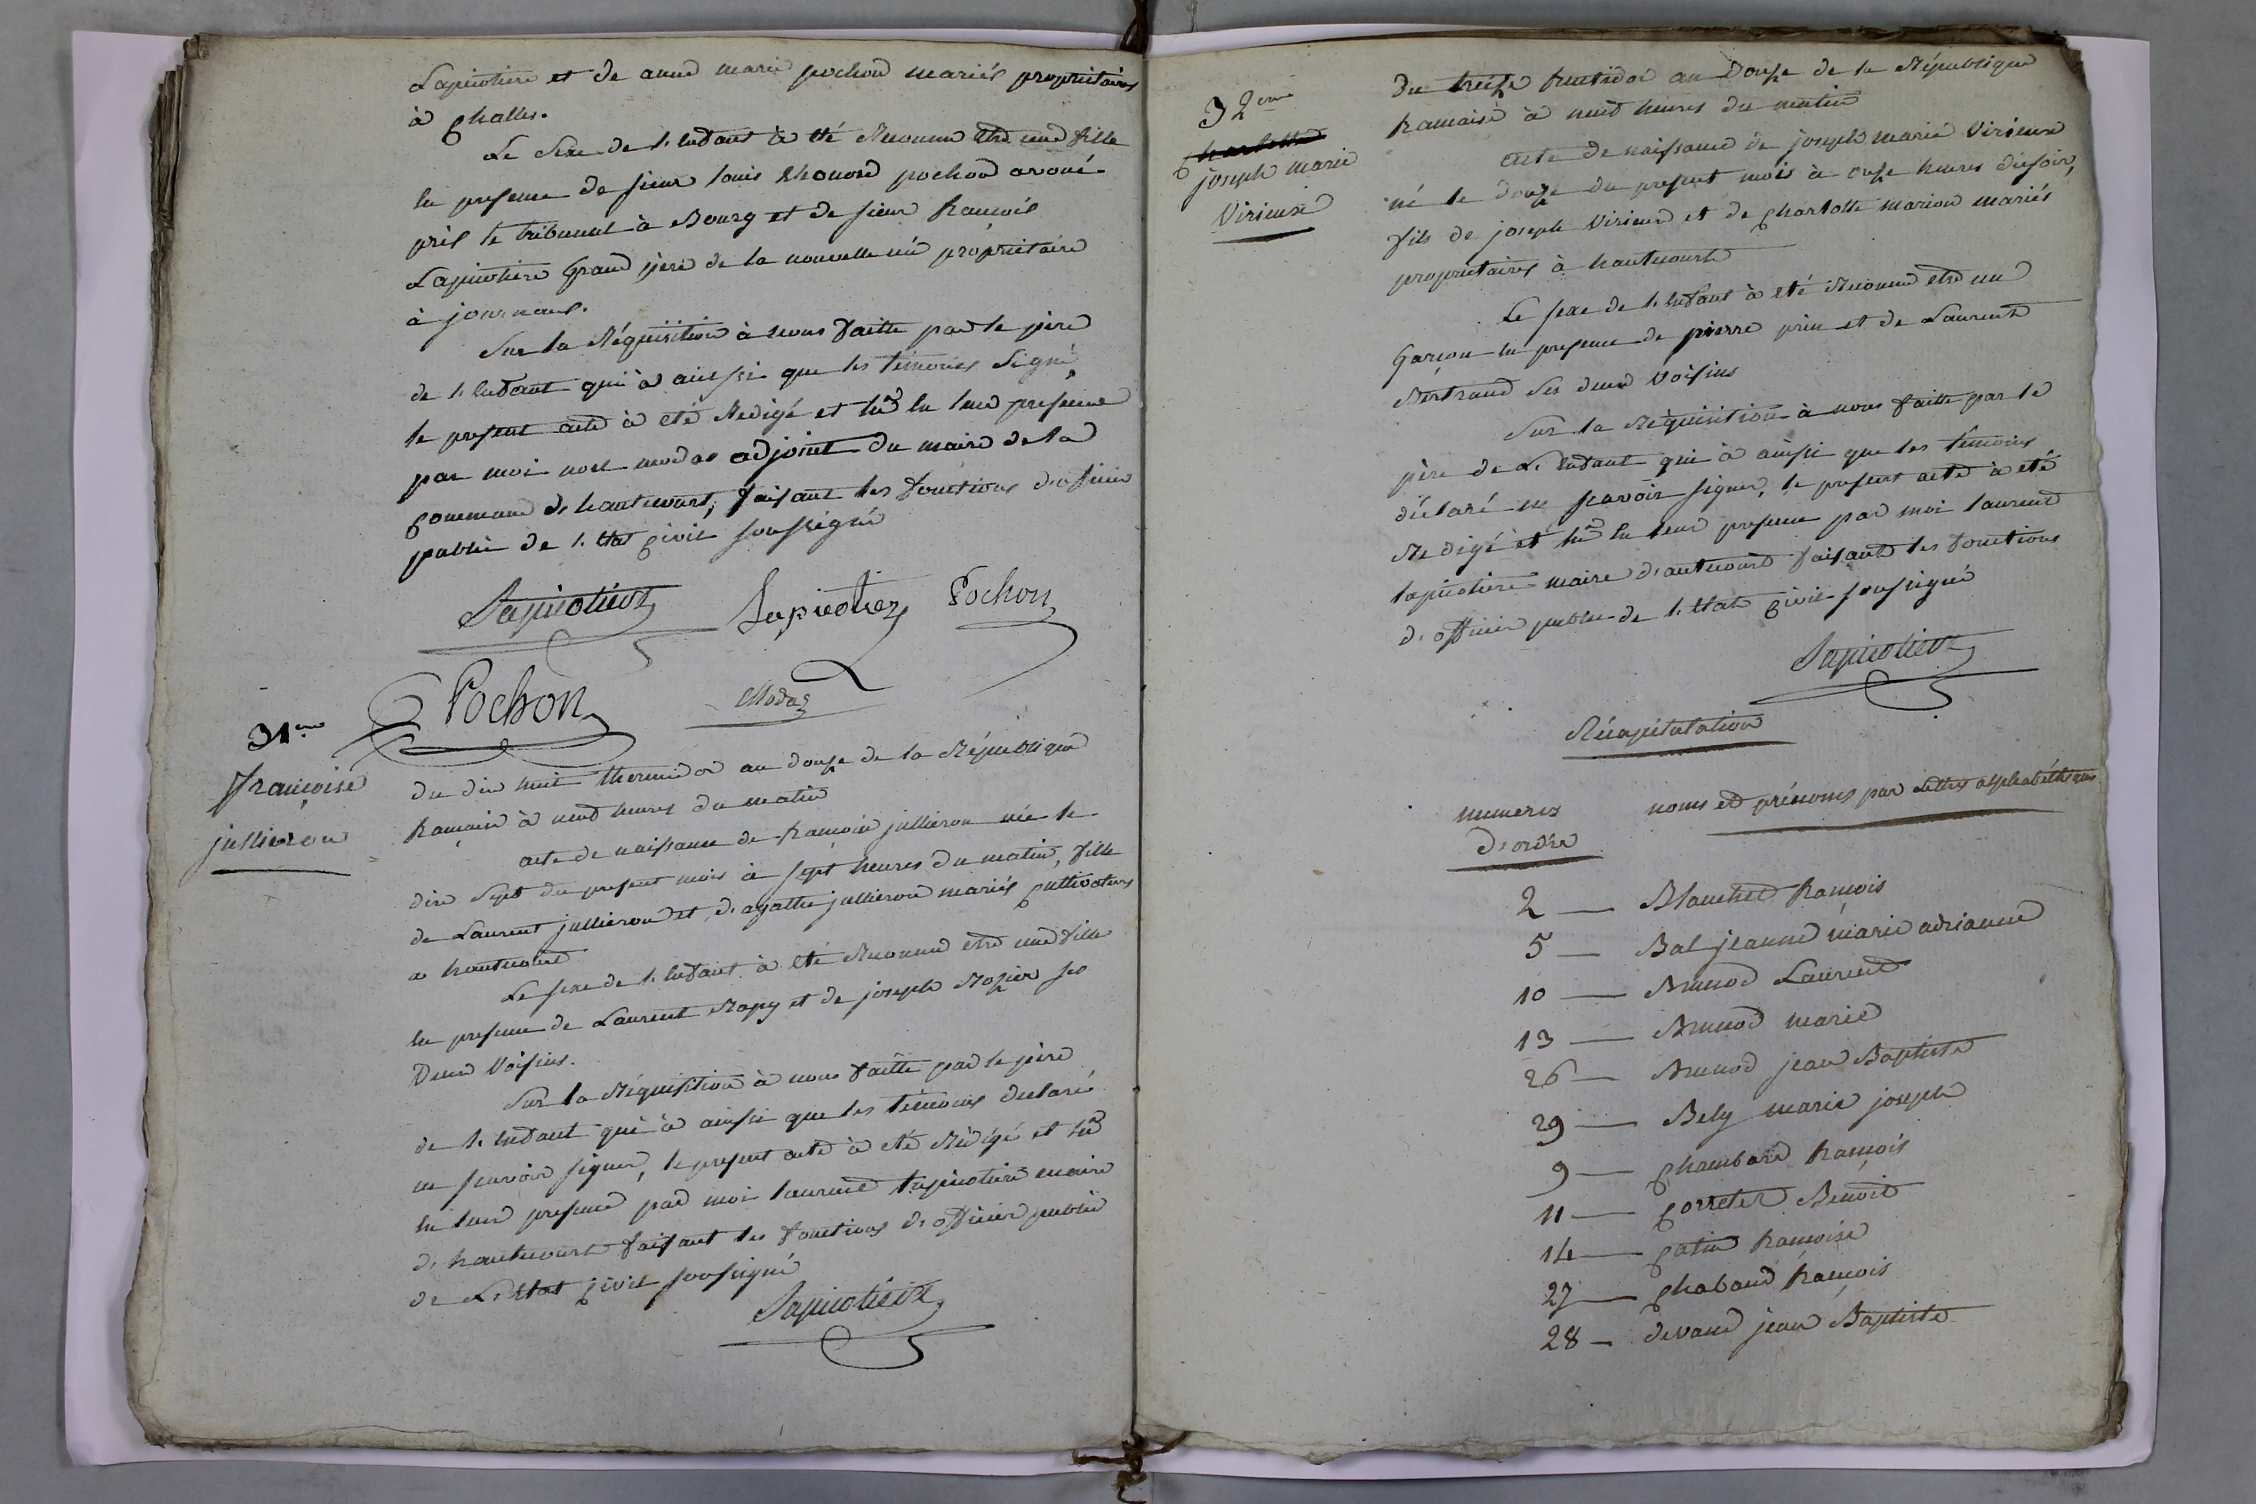 Lapicotiere et de anne marie pochon mariés propriétaires
à Challes.
Le Sexe de l'enfant à été Reconnu etre une fille
en presence de sieur louis Ehonord pochon avoué
près le tribunal à Bourg et de sieur francois
Lapicotiere Grand père de la nouvelle née propriétaire
à journans.
Sur la Réquisition à nous faitte par le père
de l'enfant qui à ainssi que les témoins Signé,
le present acte à eté Redigé et lu en leur presence
par moi noel modas adjoint du maire de la
Commune d'hautecourt, faisant les fonctions d'officier
public de l'etat Civil soussigné
Lapicotiere Lapicotier Pochon
Pochon Modas
31eme
françoise
jullieron
du dix huit thermidor an douze de la République
francaise à neuf heures du matin
acte de naissance de francoise jullieron née le
dix Sept du present mois à sept heures du matin, fille
de Laurent jullieron et d'agathe jullieron mariés Cultivateurs
a hautecourt
Le sexe de l'enfant à été Reconnu etre une fille
en presence de Laurent Rapy et de joseph Rozier ses
Deux Voisins.
Sur la Réquisition à nous faitte par le père
de l'enfant qui à ainssi que les témoins declaré
ne scavoir signer, le present acte à eté Rédigé et lu
en leur presence par moi laurent lapicotiere maire
d'hautecourt faisant les fonctions d'officier public
de L'etat Civil soussigné
Lapicotiere
32eme
Charlotte
joseph marie
Virieux
Du treize fructidor an Douze de la République
francaise à neuf heures du matin
acte de naissance de joseph marie Virieux
né le douze du present mois à onze heures du soir,
fils de joseph Virieux et de Charlotte marion mariés
propriétaires à hautecourt
Le sexe de l'enfant à eté Reconnu etre un
Garçon en presence de pierre prin et de Laurent
Bertrand Ses deux Voisins
Sur la Réquisition à nous faitte par le
père de L'enfant qui à ainssi que les témoins
déclaré ne scavoir signer, le present acte à eté
Redigé et lu en leur presence par moi laurent
lapicotiere maire d'autecourt faisant les fonctions
d'officier public de l'etat Civil soussigné
Lapicotiere
Récapitulation
numeros noms et prénoms par Lettres alphabétiques
D'ordre
2 — Blanchet francois
5 — Bal jeanne marie adrianne
10 — Brunod Laurent
13 — Brunod marie
26 — Brunod jean Baptiste
29 — Bely marie joseph
9 — Chambard francois
11 — Correter Benoit
14 — Catin francoise
27 — Chaband francois
28 — devaux jean Baptiste